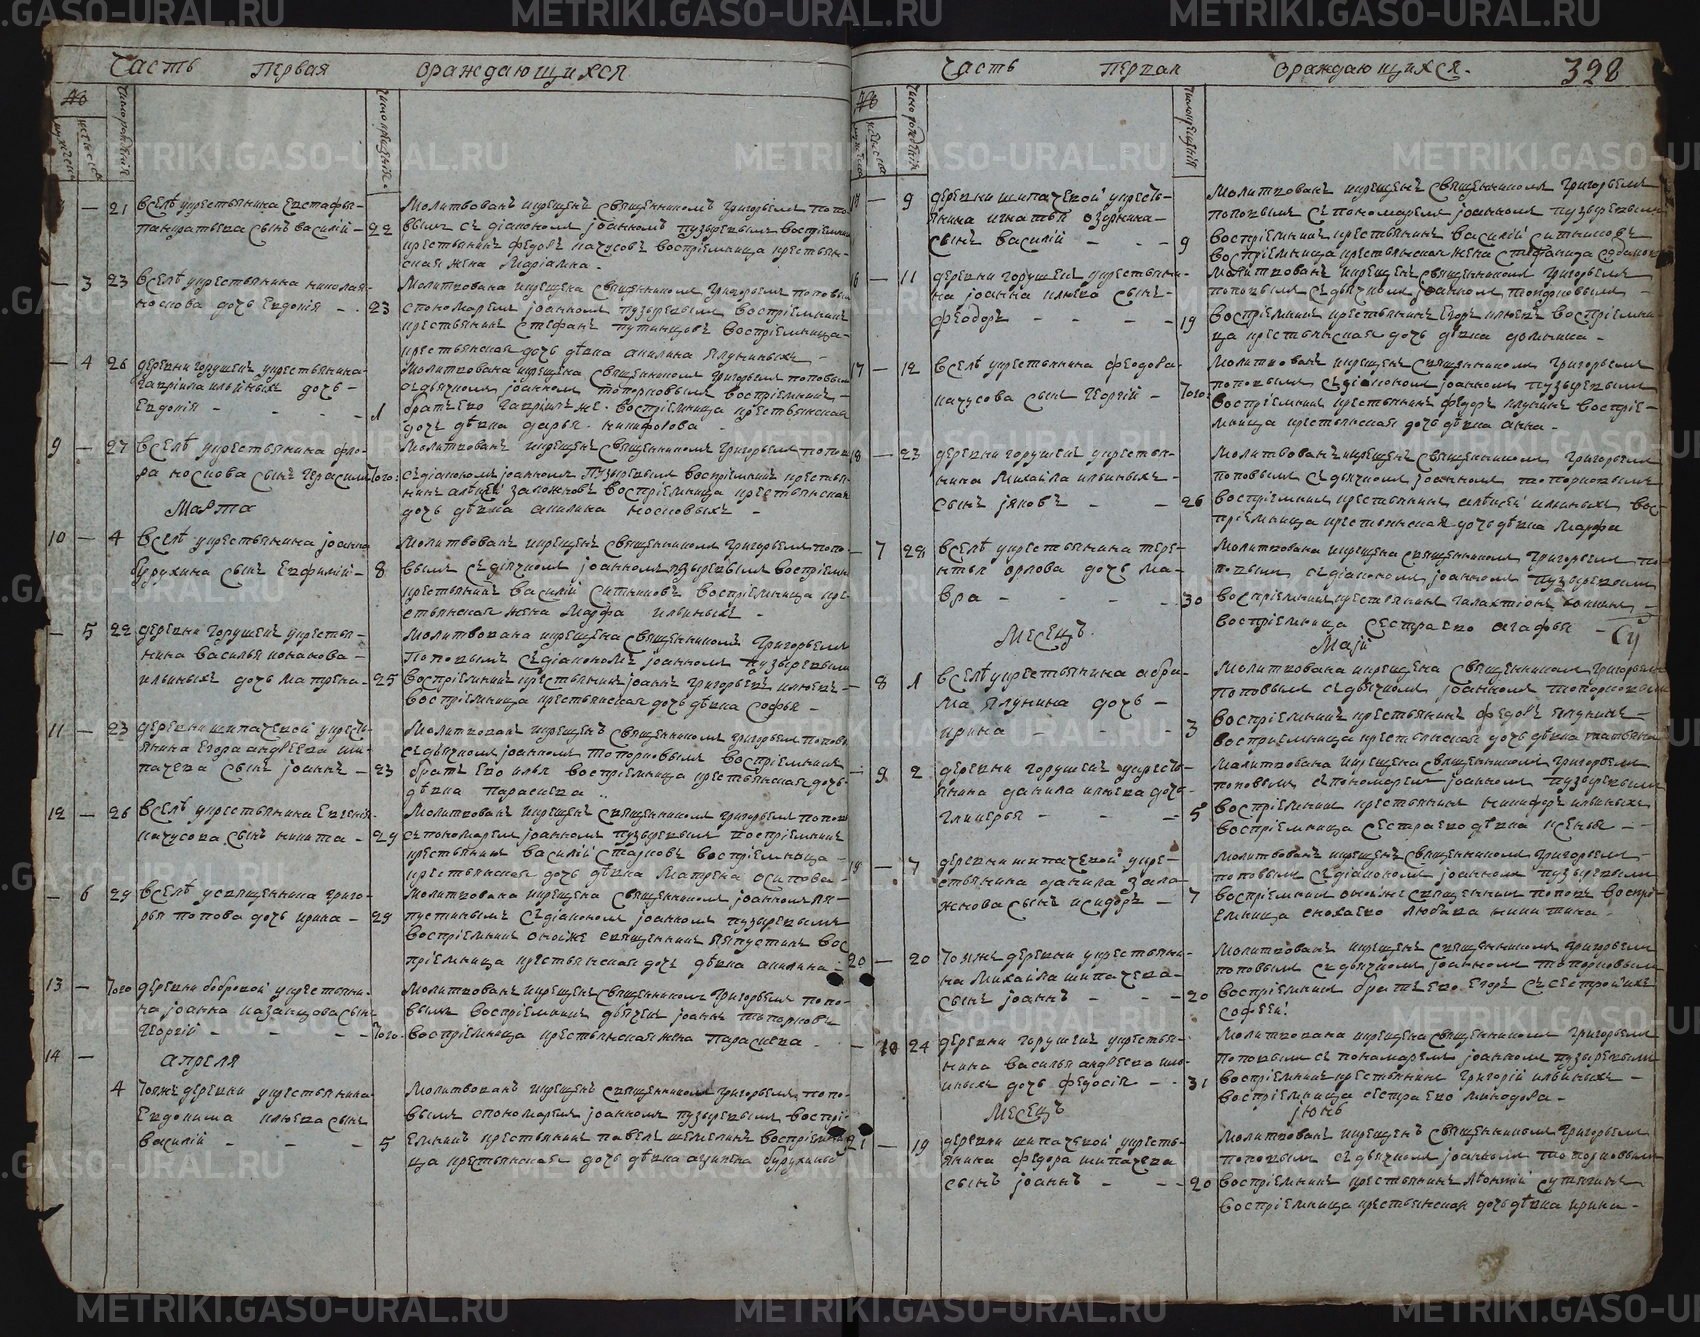 Часть первая ораждающихся
21 Вселѣ укрестьянина Евстафья
сынъ василій 22
Молитвованъ икрещенъ священникомъ Григорьемъ попо-
вымъ съ діакономъ іоанномъ пузыревымъ восприемникъ
крестьянинъ федоръ качусовъ восприемница крестьян-
ская жена Маріамна
3 23 Вселѣ укрестьянина николая
носкова дочь Евдокія 23
Молитвована икрещена священникомъ Григорьемъ поповым
спономаремъ іоанномъ пузыревымъ восприемникъ
крестьянинъ стефанъ путинцовъ восприемница
крестьянская дочь дѣвка акилина
4 26 деревни горушекъ укрестьянина
гавріила ильиныхъ дочь
Евдокія 1
Молитвована икрещена священникомъ Григорьемъ поповым
съдьячкомъ іоанномъ топорковымъ восприемникъ
братъ его восприемница крестьянская
дочь дѣвка дарья никифорова
9 27 Вселѣ укрестьянина фло-
ра носкова сынъ Герасимъ того:
Молитвованъ икрещенъ священникомъ Григорьемъ попов
съдіакономъ іоанномъ пузыревымъ восприемникъ крестья-
нинъ алѣксѣй заложновъ восприемница крестьянская
дочь дѣвка акилина носковыхъ
Марта
10 4 Вселѣ укрестьянина іоанна
бурухина сынъ Евфимій 8
Молитвованъ икрещенъ священникомъ Григорьемъ попо-
вымъ съдьячкомъ іоанномъ пузыревымъ восприемни
крестьянинъ василій ситниковъ восприемница кре-
стьянская жена Марфа ильиныхъ
5 22 деревни горушекъ укрестья-
нина василья конакова
ильиныхъ дочь матрена 25
Молитвована икрещена священникомъ Григорьемъ
поповымъ съдіакономъ іоанномъ пузыревым
восприемникъ крестьянинъ іоаннъ григорьевъ клюевъ
восприемница крестьянская дочь дѣвка софья
11 23 деревни шипачевой укресть-
янина Егора андрѣева ши-
пачева сынъ іоаннъ 23
Молитвованъ икрещенъ священникомъ григорьемъ попов
съдьячкомъ іоанномъ топорковымъ восприемникъ
братъ его илья восприемница крестьянская дочь
дѣвка параскева
12 26 Вселѣ укрестьянина Евгенія
качусова сынъ никита 29
Молитвованъ икрещенъ священникомъ григорьемъ попов
съпономаремъ іоанномъ пузыревымъ восприемникъ
крестьянинъ василій старковъ восприемница
крестьянская дочь дѣвка матрена осипова
6 29 Вселѣ усвященника григо-
рья попова дочь ирина 29
Молитвована икрещена священникомъ іоанномъ ля-
пустинымъ съдіакономъ іоанномъ пузыревымъ
восприемникъ онойже священникъ ляпустинъ вос
приемница крестьянская дочь дѣвка акилина
13 того деревни бобровой укрестьяни-
на іоанна казанцова сынъ
Георгій того:
Молитвованъ икрещенъ священникомъ григорьемъ попо-
вымъ восприемникъ дьячекъ іоаннъ топорковъ
восприемница крестьянская жена параскева
14
апреля
4 тояже деревни укрестьянина
Евдокима клюева сынъ
василій 5
Молитвованъ икрещенъ священникомъ григорьемъ попо-
вымъ спономаремъ іоанномъ пузыревымъ воспрі-
емникъ крестьянинъ павелъ шемелинъ восприемни
ца крестьянская дочь дѣвка акулина бурухиныхъ
Часть первая ораждающихся. 328
9 деревни шипачевой укресть-
янина игнатья озоркина
сынъ василій 9
Молитвованъ икрещенъ священникомъ Григорьемъ
поповымъ съпономаремъ іоанномъ пузыревымъ
восприемникъ крестьянинъ василій ситниковъ
восприемница крестьянская жена стефанида
16 11 деревни горушекъ укрестьяни-
на іоанна клюева сынъ
феодоръ 19
Молитвованъ икрещенъ священникомъ Григорьемъ
поповымъ съдьячкомъ іоанномъ топорковымъ
восприемникъ крестьянинъ Егоръ клюевъ восприемни-
ца крестьянская дочь дѣвка домника
17 12 Вселѣ укрестьянина феодора
качусова сынъ Георгій того:
Молитвованъ икрещенъ священникомъ Григорьемъ
поповымъ съдіакономъ іоанномъ пузыревымъ
восприемникъ крестьянинъ федоръ восприе-
мница крестьянская дочь дѣвка анна
18 23 деревни горушекъ укрестья-
нина Михаила ильиныхъ
сынъ іяковъ 26
Молитвованъ икрещенъ священникомъ Григорьемъ
поповымъ съдьячкомъ іоанномъ топорковымъ
восприемникъ крестьянинъ алѣксѣй ильиныхъ вос-
приемница крестьянская дочь дѣвка марфа
7 28 Вселѣ укрестьянина тере-
нтья орлова дочь ма-
вра 30
Молитвована икрещена священникомъ Григорьемъ по-
повымъ съдіакономъ іоанномъ пузыревым
восприемникъ крестьянинъ галахтіонъ
восприемница сестра его агафья
Месецъ Маій
8 1 Вселѣ укрестьянина абра-
ма ялунина дочь
ирина 3
Молитвована икрещена священникомъ григорьемъ
поповымъ съдьячкомъ іоанномъ топорковым
восприемникъ крестьянинъ федоръ ялунинъ
восприемница крестьянская дочь дѣвка татьяна
9 2 деревни горушекъ укресть-
янина данила клюева дочь
гликерья 5
Молитвована икрещена священникомъ григорьемъ
поповымъ съпономаремъ іоанномъ пузыревымъ
восприемникъ крестьянинъ никифоръ ильиныхъ
восприемница сестра его дѣвка ксенья
19 7 деревни шипачевой укре-
стьянина данила зало-
жнова сынъ исидоръ 7
Молитвованъ икрещенъ священникомъ Григорьемъ
поповымъ съдіакономъ іоанномъ пузыревым
восприемникъ онойже священникъ поповъ воспрі-
емница сноха его любава никитина
20 20 тояже деревни укрестьяни-
на Михаила шипачева
сынъ іоаннъ 20
Молитвованъ икрещенъ священникомъ Григорьемъ
поповымъ съдьячкомъ іоанномъ топорковымъ
восприемникъ братъ его Егоръ съсестрой ихъ
софьей
10 24 деревни горушекъ укрестья-
нина василья андрѣева иль-
иныхъ дочь федосія 31
Молитвована икрещена священникомъ григорьемъ
поповымъ съпономаремъ іоанномъ пузыревымъ
восприемникъ крестьянинъ григорій ильиныхъ
восприемница сестра его минодора
Месецъ іюнь
21 19 деревни шипачевой укресть-
янина федора шипачева
сынъ іоаннъ 20
Молитвованъ икрещенъ священникомъ григорьемъ
поповымъ съдьячкомъ іоанномъ топорковымъ
восприемникъ крестьянинъ лѣонтій сутягинъ
восприемница крестьянская дочь дѣвка ирина
METRIKI.GASO-URAL.RU